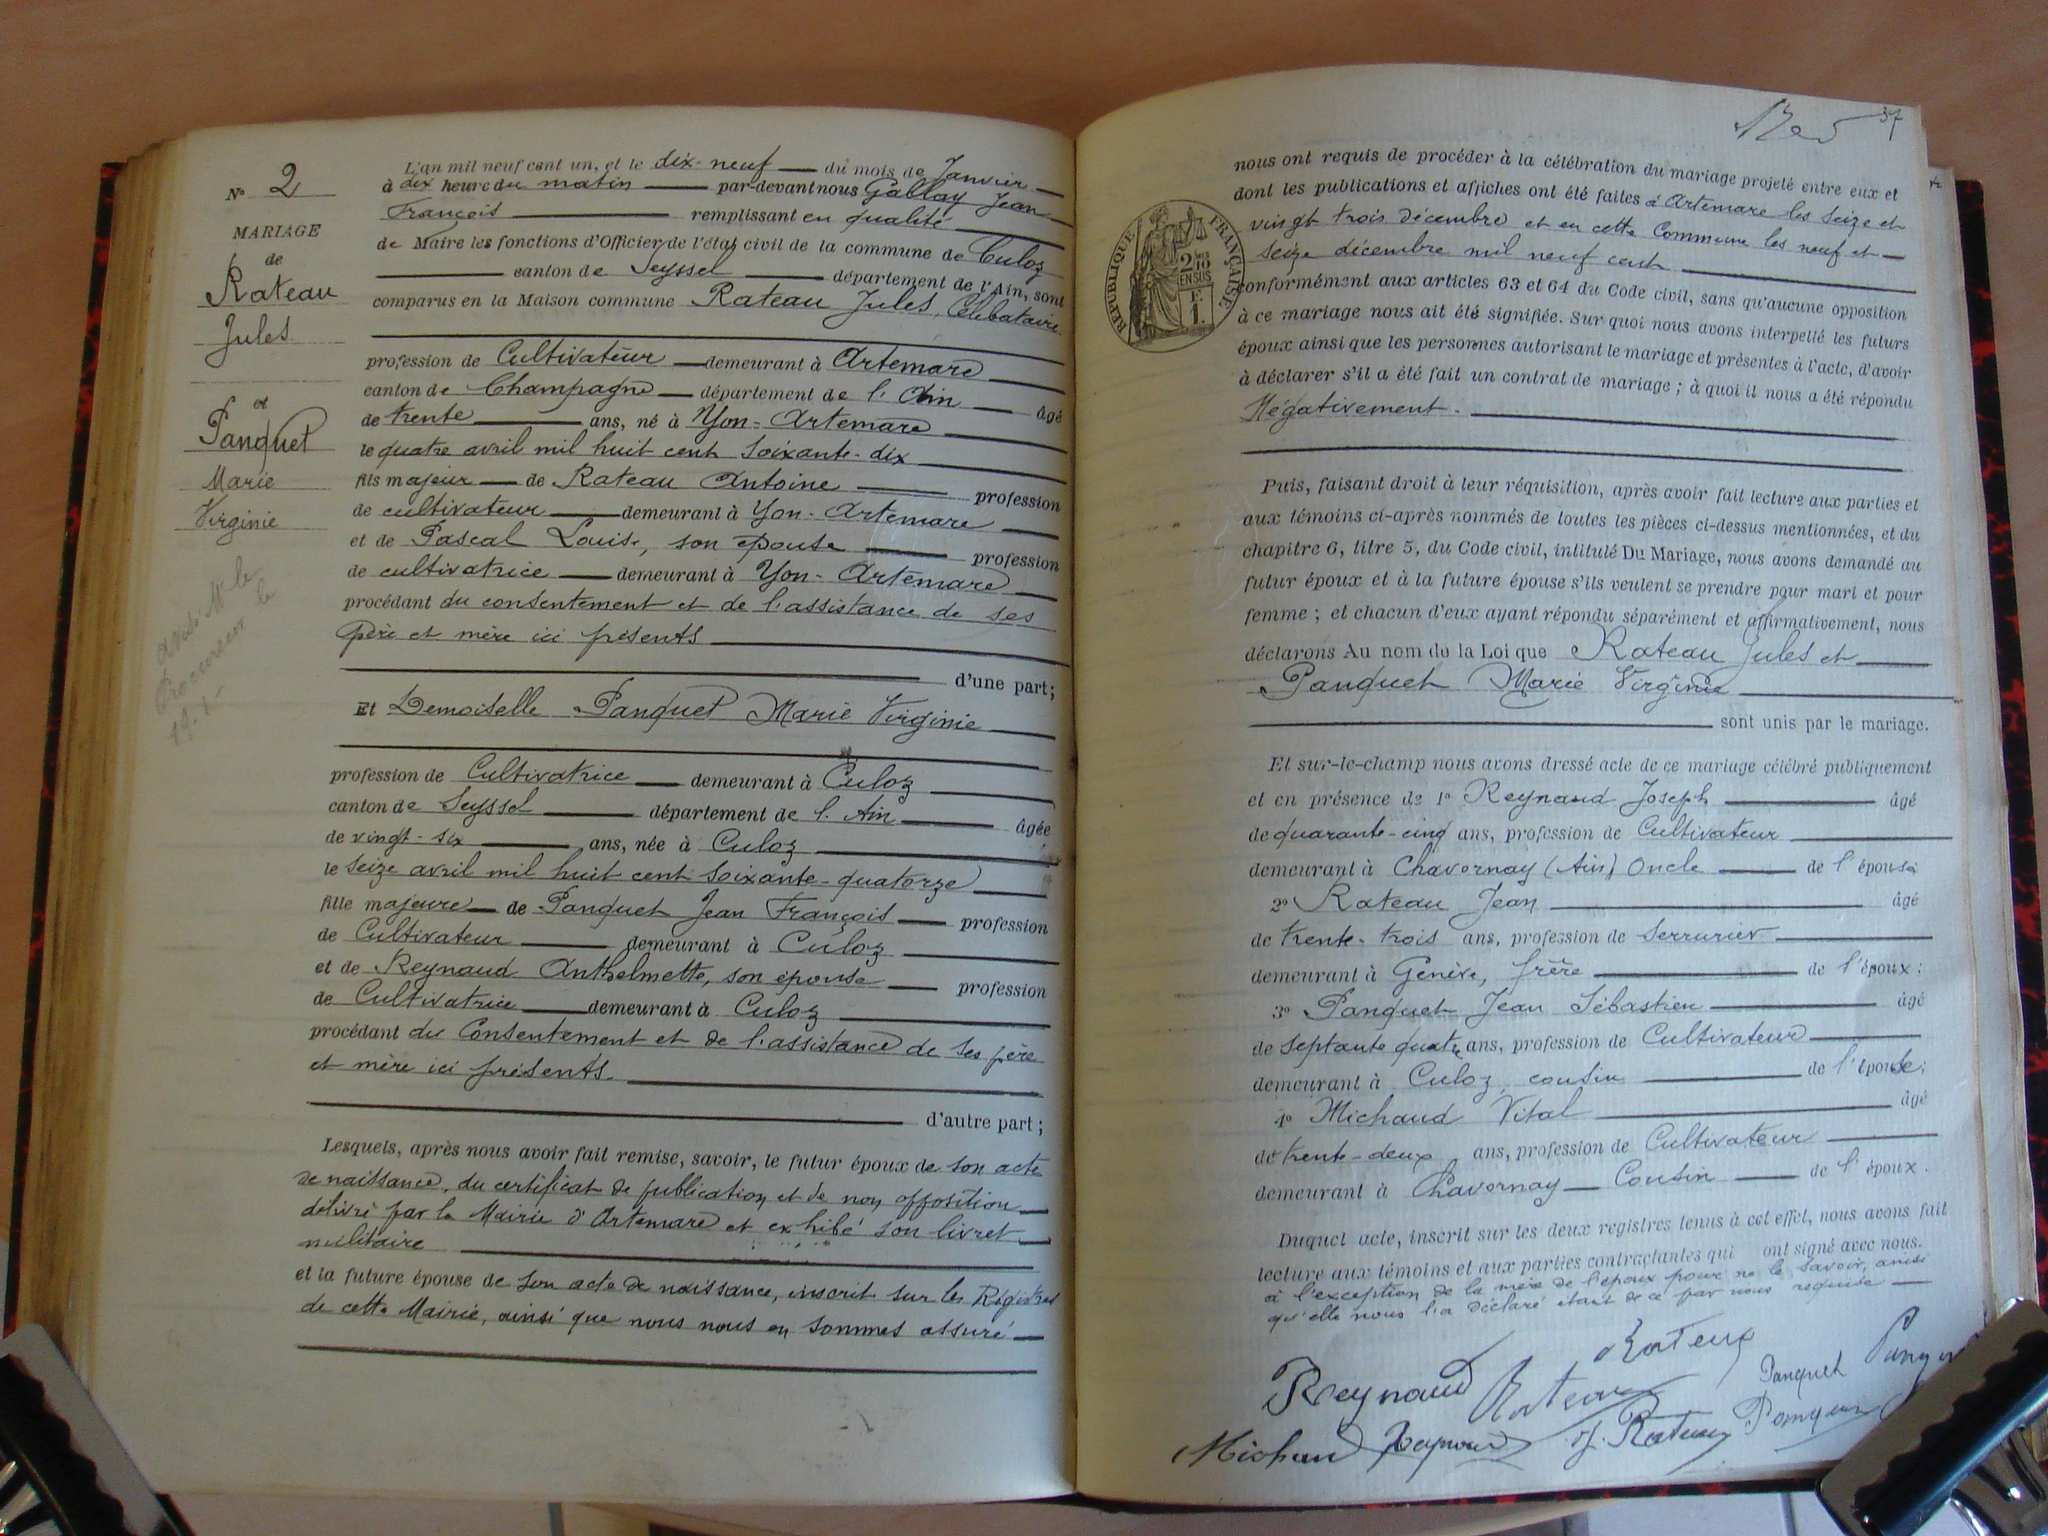 N° 2
MARIAGE
de
Rateau
Jules
et
Panquet
Marie
Virginie
avis Mr le
Procureur le
19-1-
L'an mil neuf cent un, et le dix-neuf du mois de Janvier
à dix heure du matin par-devant nous Gallay Jean
François remplissant en qualité
de Maire les fonctions d'Officier de l'état civil de la commune de Culoz
canton de Seyssel département de l'Ain, sont
comparus en la Maison commune Rateau Jules, Célibataire
profession de Cultivateur demeurant à Artemare
canton de Champagne département de l'Ain âgé
de trente ans, né à Yon-Artemare
le quatre avril mil huit cent soixante-dix
fils majeur de Rateau Antoine profession
de cultivateur demeurant à Yon-Artemare
et de Pascal Louise, son épouse profession
de cultivatrice demeurant à Yon-Artemare
procédant du consentement et de l'assistance de ses
père et mère ici présents
d'une part;
Et Demoiselle Panquet Marie Virginie
profession de Cultivatrice demeurant à Culoz
canton de Seyssel département de l'Ain âgée
de vingt-six ans, née à Culoz
le seize avril mil huit cent soixante-quatorze
fille majeure de Panquet Jean François profession
de Cultivateur demeurant à Culoz
et de Reynaud Anthelmette, son épouse profession
de Cultivatrice demeurant à Culoz
procédant du Consentement et de l'assistance de ses père
et mère ici présents.
d'autre part;
Lesquels, après nous avoir fait remise, savoir, le futur époux de son acte
de naissance, du certificat de publication et de non opposition
délivré par la Mairie d'Artemare et exhibé son livret
militaire
et la future épouse de son acte de naissance, inscrit sur les Registres
de cette Mairie, ainsi que nous nous en sommes assuré
37
RÉPUBLIQUE FRANÇAISE
2/10 EN SUS
F.
1.
nous ont requis de procéder à la célébration du mariage projeté entre eux et
dont les publications et affiches ont été faites à Artemare les seize et
vingt trois décembre et en cette Commune les neuf et
seize décembre mil neuf cent
conformément aux articles 63 et 64 du Code civil, sans qu'aucune opposition
à ce mariage nous ait été signifiée. Sur quoi nous avons interpellé les futurs
époux ainsi que les personnes autorisant le mariage et présentes à l'acte, d'avoir
à déclarer s'il a été fait un contrat de mariage; à quoi il nous a été répondu
Négativement.
Puis, faisant droit à leur réquisition, après avoir fait lecture aux parties et
aux témoins ci-après nommés de toutes les pièces ci-dessus mentionnées, et du
chapitre 6, titre 5, du Code civil, intitulé Du Mariage, nous avons demandé au
futur époux et à la future épouse s'ils veulent se prendre pour mari et pour
femme; et chacun d'eux ayant répondu séparément et affirmativement, nous
déclarons Au nom de la Loi que Rateau Jules et
Panquet Marie Virginie
sont unis par le mariage.
Et sur-le-champ nous avons dressé acte de ce mariage célébré publiquement
et en présence de 1° Reynaud Joseph âgé
de quarante-cinq ans, profession de Cultivateur
demeurant à Chavornay (Ain) Oncle de l'épouse
2° Rateau Jean âgé
de trente-trois ans, profession de serrurier
demeurant à Genève, frère de l'époux;
3° Panquet Jean Sébastien âgé
de septante quatre ans, profession de Cultivateur
demeurant à Culoz, cousin de l'épouse;
4° Michaud Vital âgé
de trente-deux ans, profession de Cultivateur
demeurant à Chavornay Cousin de l'époux.
Duquel acte, inscrit sur les deux registres tenus à cet effet, nous avons fait
lecture aux témoins et aux parties contractantes qui ont signé avec nous.
à l'exception de la mère de l'époux pour ne le savoir, ainsi
qu'elle nous l'a déclaré étant de ce par nous requise
Reynaud Rateau Panquet
Michaud J. Rateau